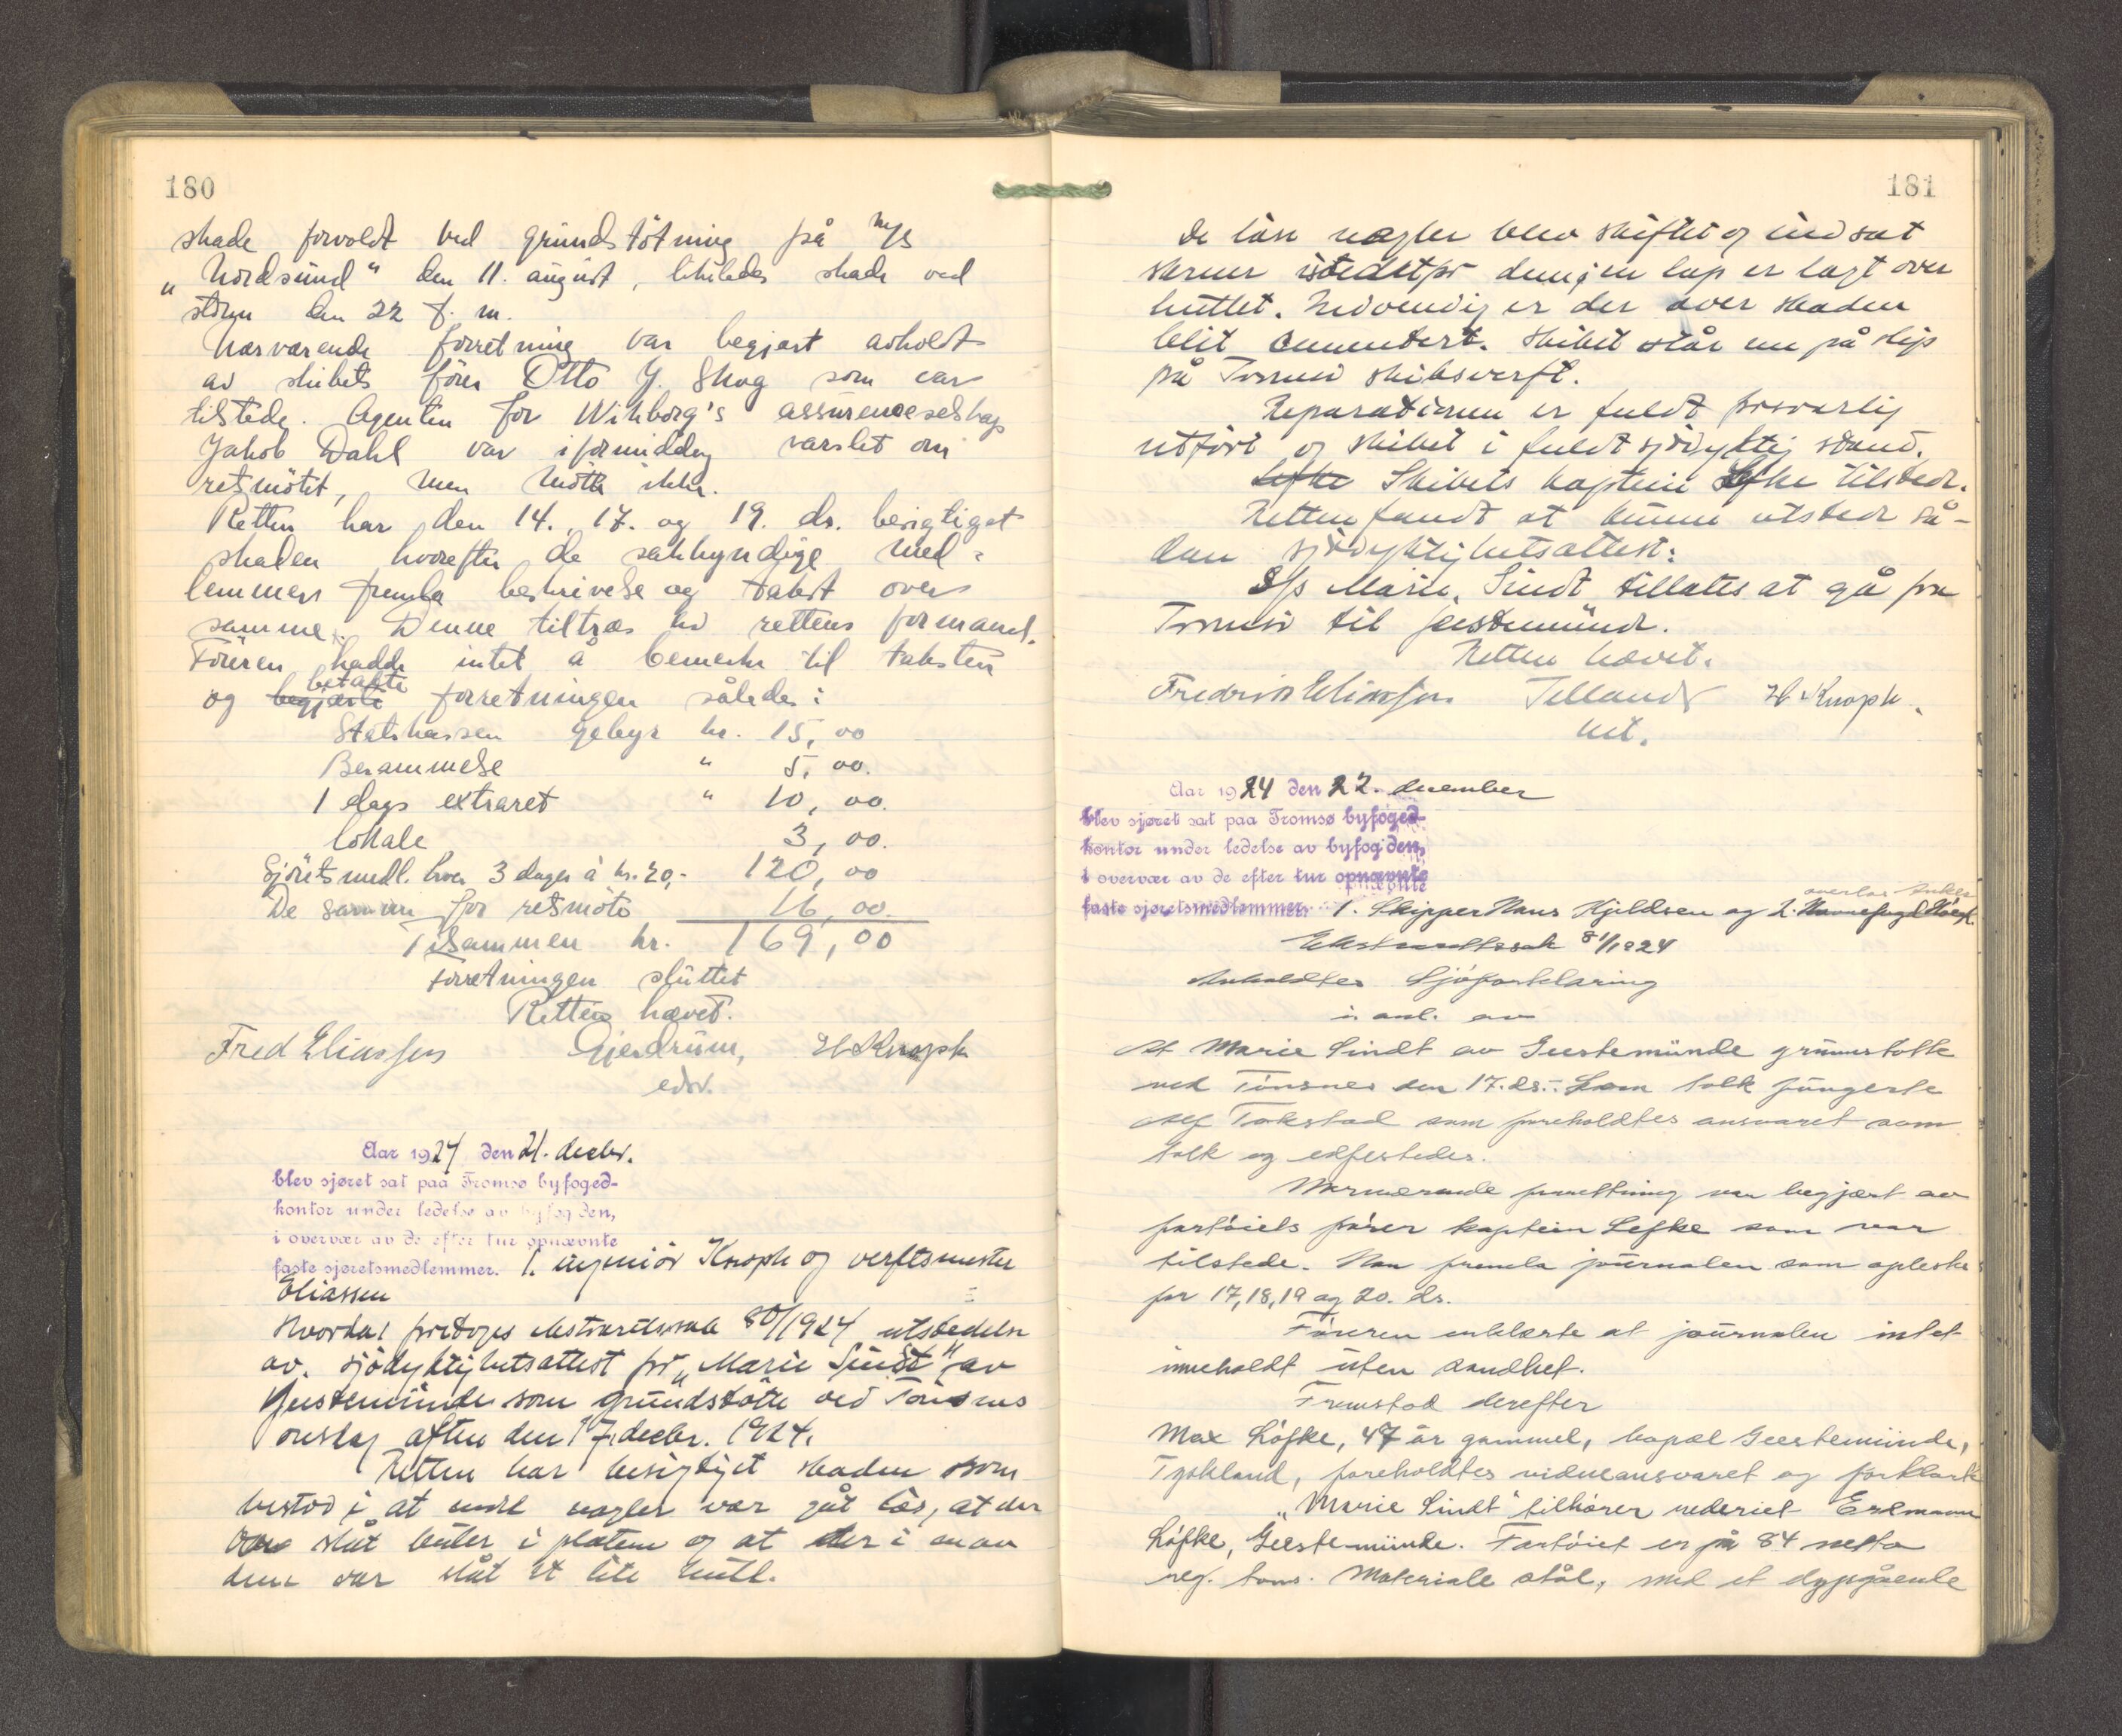 180
skade forvoldt ved grundstötning på m/s
„Nordsund" den 11. august, likeledes skade ved
storm den 22 f. m.
Nærværende forretning var begjært avholdt
av skibets förer Otto J. Skog som var
tilstede. Agenten for Wihborg's assuranceselskap
Jakob Dahl var i formiddag varslet om
retsmötet, men mötte ikke.
Retten har den 14., 17. og 19. ds. besigtiget
skaden hvorefter de sakkyndige med=
lemmer fremla beskrivelse og takst over
samme. Denne tiltræs av rettens formand.
Föreren hadde intet å bemerke til taksten
og begjærte betalte forretningen således:
Statskassen gebyr kr. 15,00
Berammelse " 5,00.
1 dags extraret " 10,00.
lokale 3,00.
Sjöretsmedl. hver 3 dager à kr. 20,- 120,00
De samme for retsmöte 16,00.
Tilsammen kr. 169,00
Forretningen sluttet
Retten hævet.
Fred Eliassen Gjerdrum, H Knoph
edsv.
Aar 1924 den 21. decbr.
blev sjøret sat paa Tromsø byfoged-
kontor under ledelse av byfogden,
i overvær av de efter tur opnævnte
faste sjøretsmedlemmer. 1. ingeniör Knoph og verftsmester
Eliassen
Hvorda! foretoges ekstraretssak 80/1924 utstedelse
av sjödyktighetsattest for „Marie Sindt" av
Geestemünde som grundstötte ved Tönsnes
onsdag aften den 17. decbr. 1924.
Retten har besigtiget skaden som
bestod i at endel nagler var gåt lös, at der
var slåt buler i platene og at der i en av
dem var slåt et lite hull.
181
De löse nagler blev skiftet og indsat
skruer istedetfor dem; en lap er lagt over
hullet. Indvendig er der over skaden
blit cementert. Skibet står nu på slip
på Tromsö skibsverft.
Reparationen er fuldt forsvarlig
utfört og skibet i fuldt sjödyktig stand.
Lefke Skibets kaptein Lefke tilstede.
Retten fandt at kunne utstede så-
dan sjödyktighetsattest:
S/s Marie Sindt tillates at gå fra
Tromsö til Geestemünde.
Retten hævet.
Fredrik Eliassen Telland H Knoph
kst.
Aar 1924 den 22. december
blev sjøret sat paa Tromsø byfoged-
kontor under ledelse av byfogden,
i overvær av de efter tur opnævnte
faste sjøretsmedlemmer. 1. Skipper Hans Kjeldsen og 2. Havnefogd
Ekstraretssak 81/1924
Anholdtes Sjöforklaring
i anl. av
At Marie Sindt av Geestemünde grundstötte
ved Tönsnes den 17. ds. - Som tolk fungerte
Alf Tokstad som foreholdtes ansvaret som
tolk og edfestedes.
Nærværende forretning var begjært av
fartöiets förer kaptein Lefke som var
tilstede. Han fremla journalen som oplestes
for 17, 18, 19 og 20. ds.
Föreren erklærte at journalen intet
inneholdt uten sandhet.
Fremstod derefter
Max Löfke, 47 år gammel, bopæl Geestemünde,
Tyskland, foreholdtes vidneansvaret og forklarte
„Marie Sindt" tilhører rederiet Erlmann
Löfke, Geestemünde. Fartöiet er på 84 netto
reg. tons. Materiale stål, med et dypgående